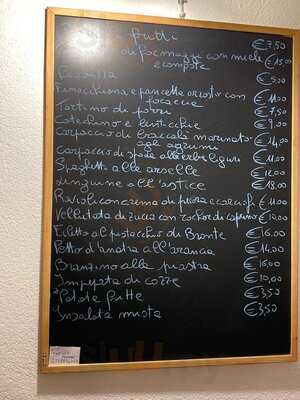 frutti €3,50
di formaggi con miele €15,00
e composte
€9,00
Finocchiona e pancetta arrosto con €11,00
focacce
Tortino di porri €7,50
Cotechino e lenticchie €9,00
Carpaccio di baccalà marinato €14,00
agli agrumi
Carpaccio di spada alle erbe liguri €11,00
Spaghetti alle arselle €12,00
Linguine all'astice €18,00
Ravioli con crema di pecora e carciofi €11,00
Vellutata di zucca con rocher di caprino €10,00
Filetto al pistacchio di Bronte €16,00
Petto d'anatra all'arancia €14,00
Branzino alla piastra €16,00
Impepata di cozze €10,00
*Patate fritte €3,50
Insalata mista €3,50